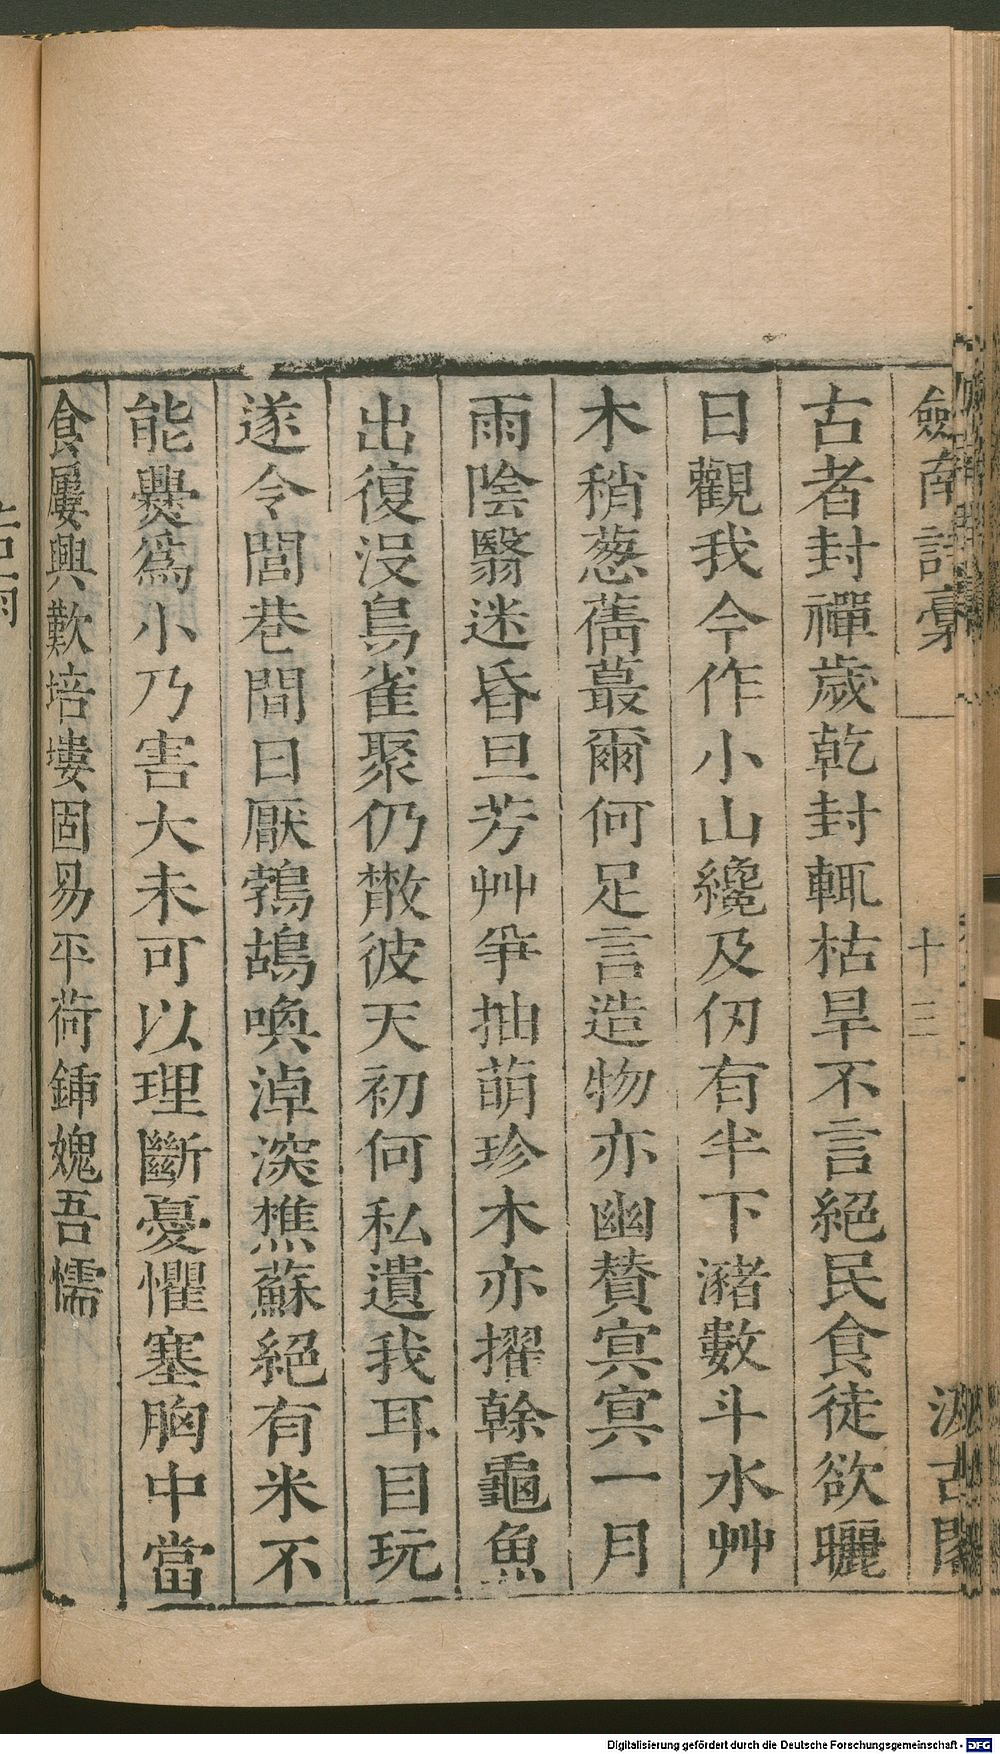 劒南詩稾
十三
汲古閣
古者封禪歲乾封輒枯旱不言絕民食徒欲曬
日觀我今作小山纔及仞有半下瀦數斗水艸
木稍葱蒨蕞爾何足言造物亦幽贊冥冥一月
雨陰翳迷昏旦芳艸爭抽萌珍木亦擢榦龜魚
出復没鳥雀聚仍散彼天初何私遺我耳目玩
遂令閭巷間日厭鵓鴣喚淖深樵蘇絕有米不
能爨爲小乃害大未可以理斷憂懼塞胸中當
食屢興歎培塿固易平荷鍤媿吾懦
Digitalisierung gefördert durch die Deutsche Forschungsgemeinschaft - DFG